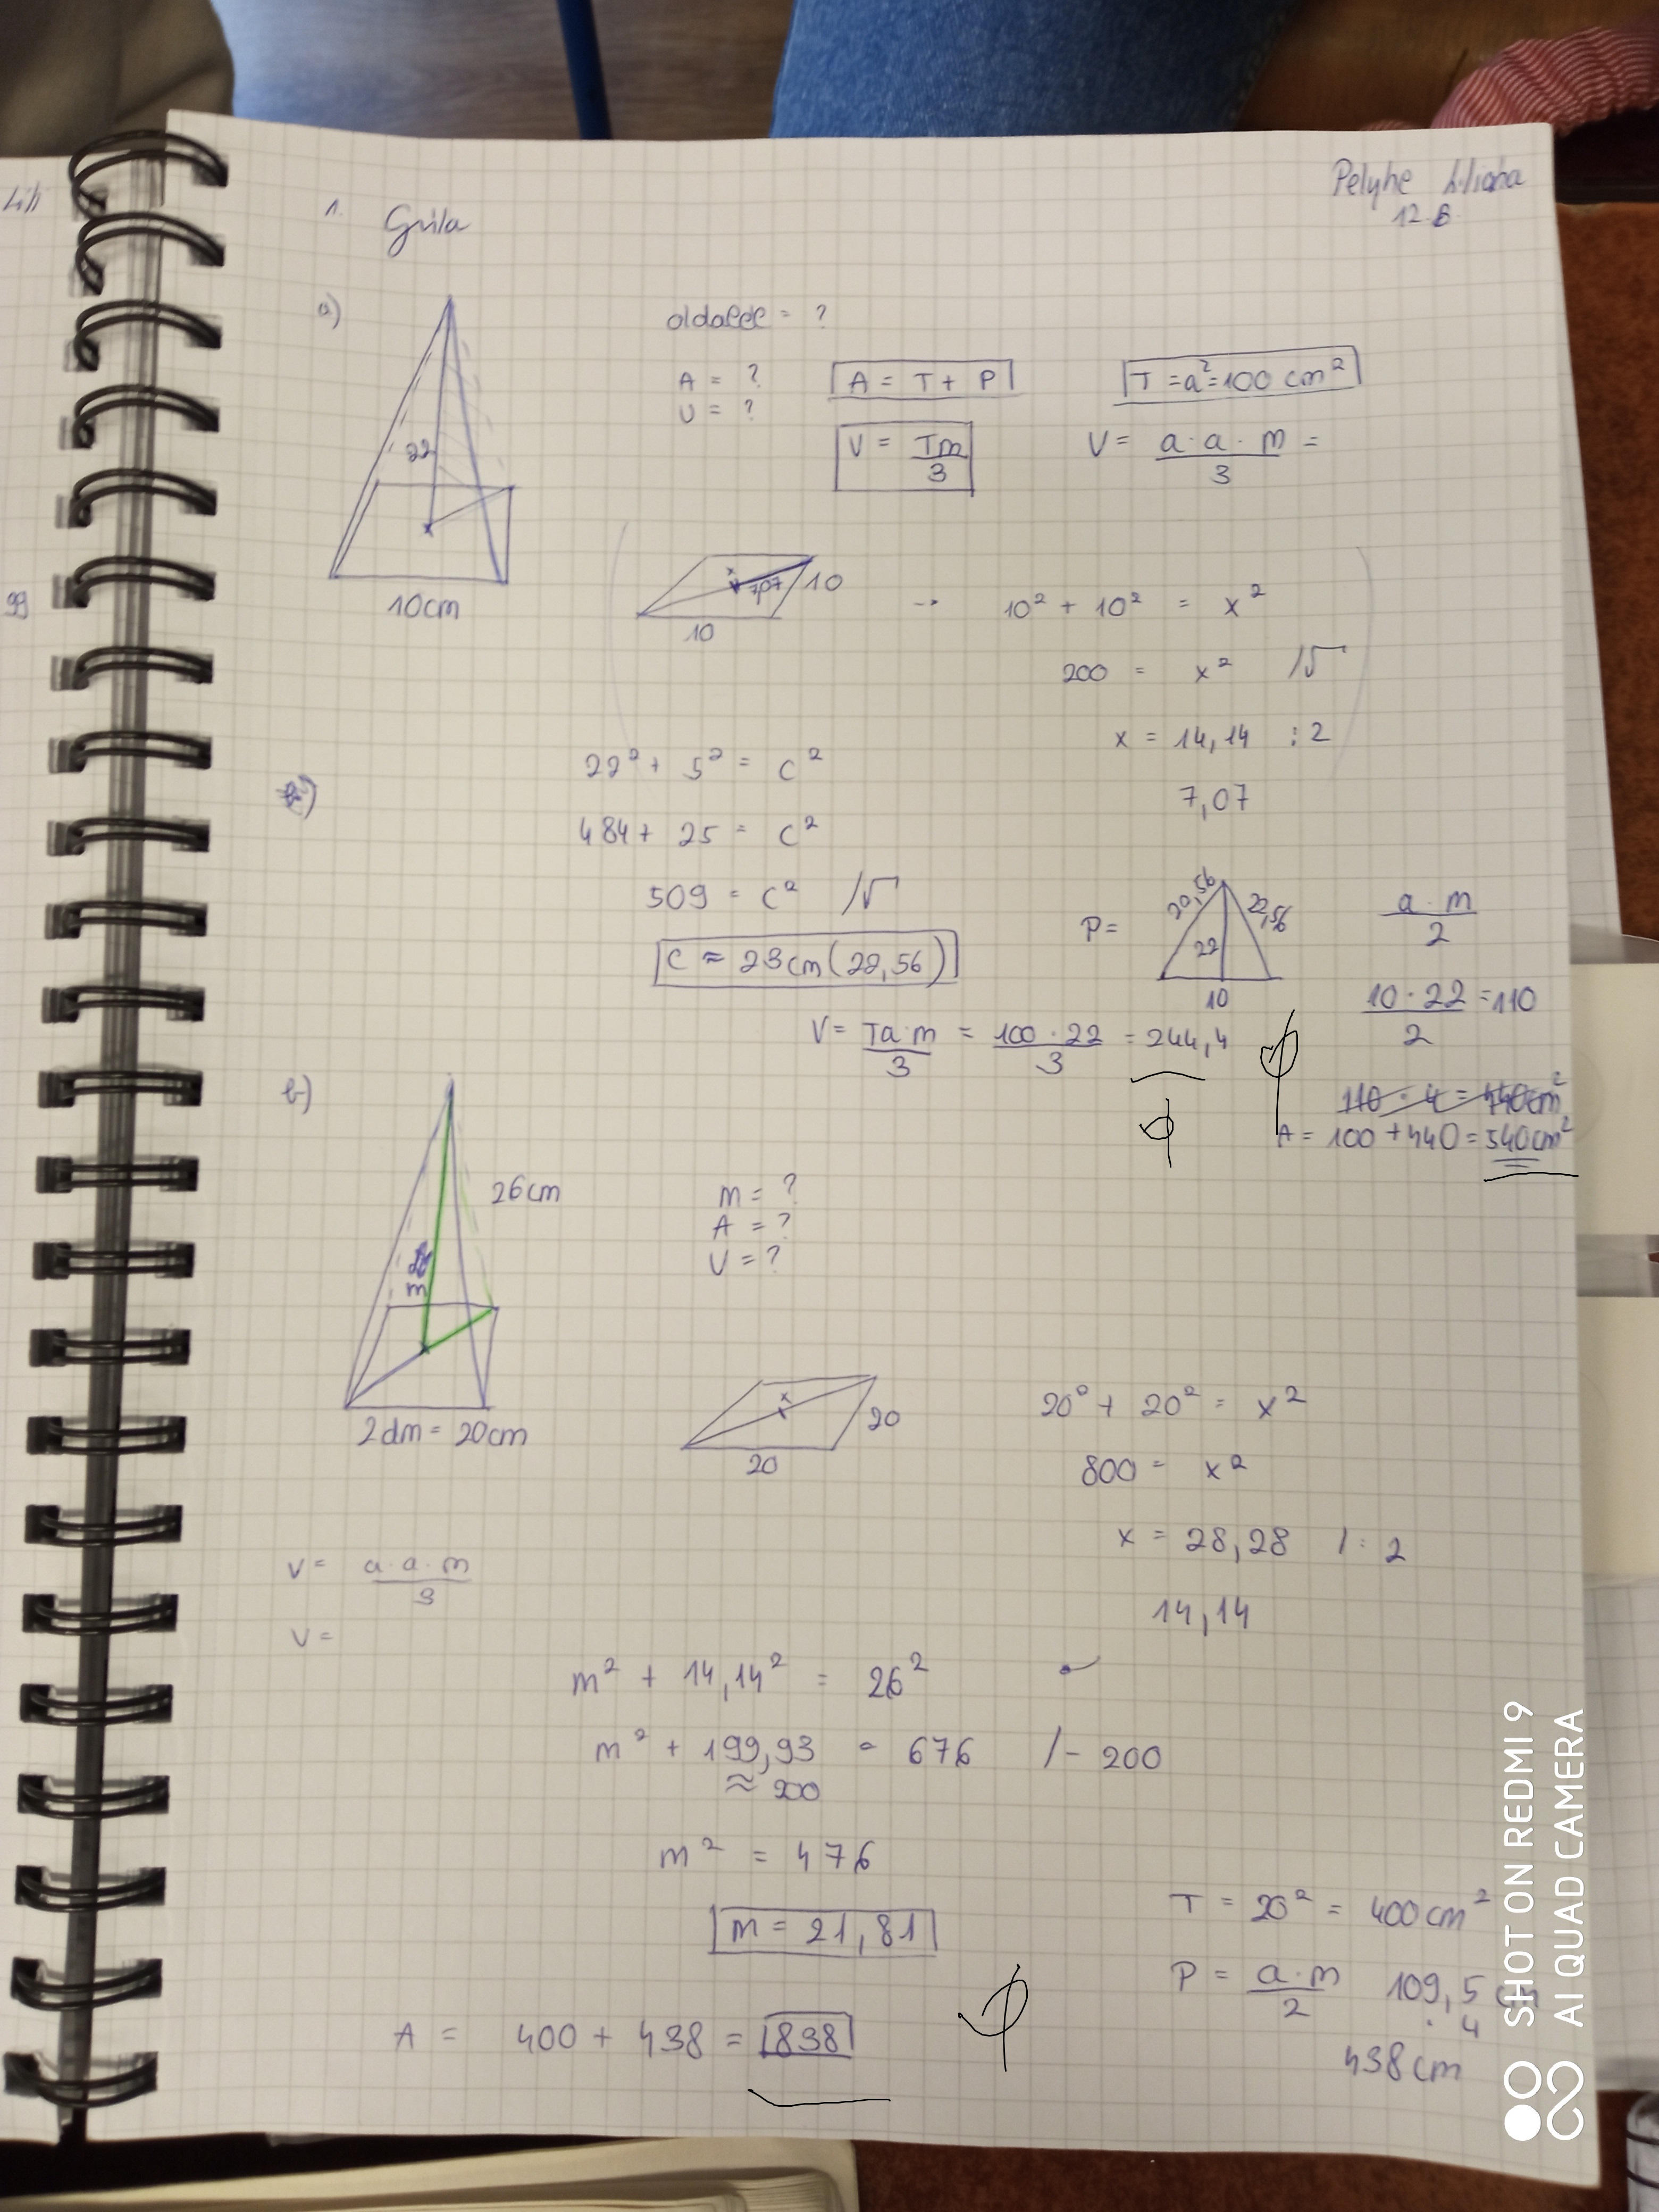 Lili
99
Pelyhe Liliána
12.B
1. Gúla
a)
oldalél = ?
A = ?
V = ?
A = T + P
T = a² = 100 cm²
V = Tm / 3
V = a · a · m / 3 =
22
10cm
7,07
10
10
x
→ 10² + 10² = x²
200 = x² /√
x = 14,14 : 2
7,07
22² + 5² = c²
484 + 25 = c²
509 = c² /√
c ≈ 23cm (22,56)
P =
20,56
22,56
22
10
a · m / 2
10 · 22 / 2 = 110
V = Ta · m / 3 = 100 · 22 / 3 = 244,4
110 · 4 = 440cm²
A = 100 + 440 = 540cm²
b)
26cm
m
m = ?
A = ?
V = ?
2dm = 20cm
x
20
20
20² + 20² = x²
800 = x²
x = 28,28 / : 2
14,14
V = a · a · m / 3
V =
m² + 14,14² = 26²
m² + 199,93 = 676 / - 200
≈ 200
m² = 476
m = 21,81
T = 20² = 400cm²
P = a · m / 2 109,5
· 4
438cm
A = 400 + 438 = 838
SHOT ON REDMI 9
AI QUAD CAMERA